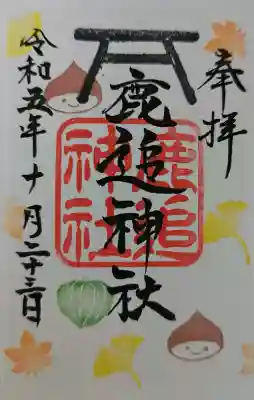 奉拝
鹿追神社
鹿追神社
令和五年十月二十三日